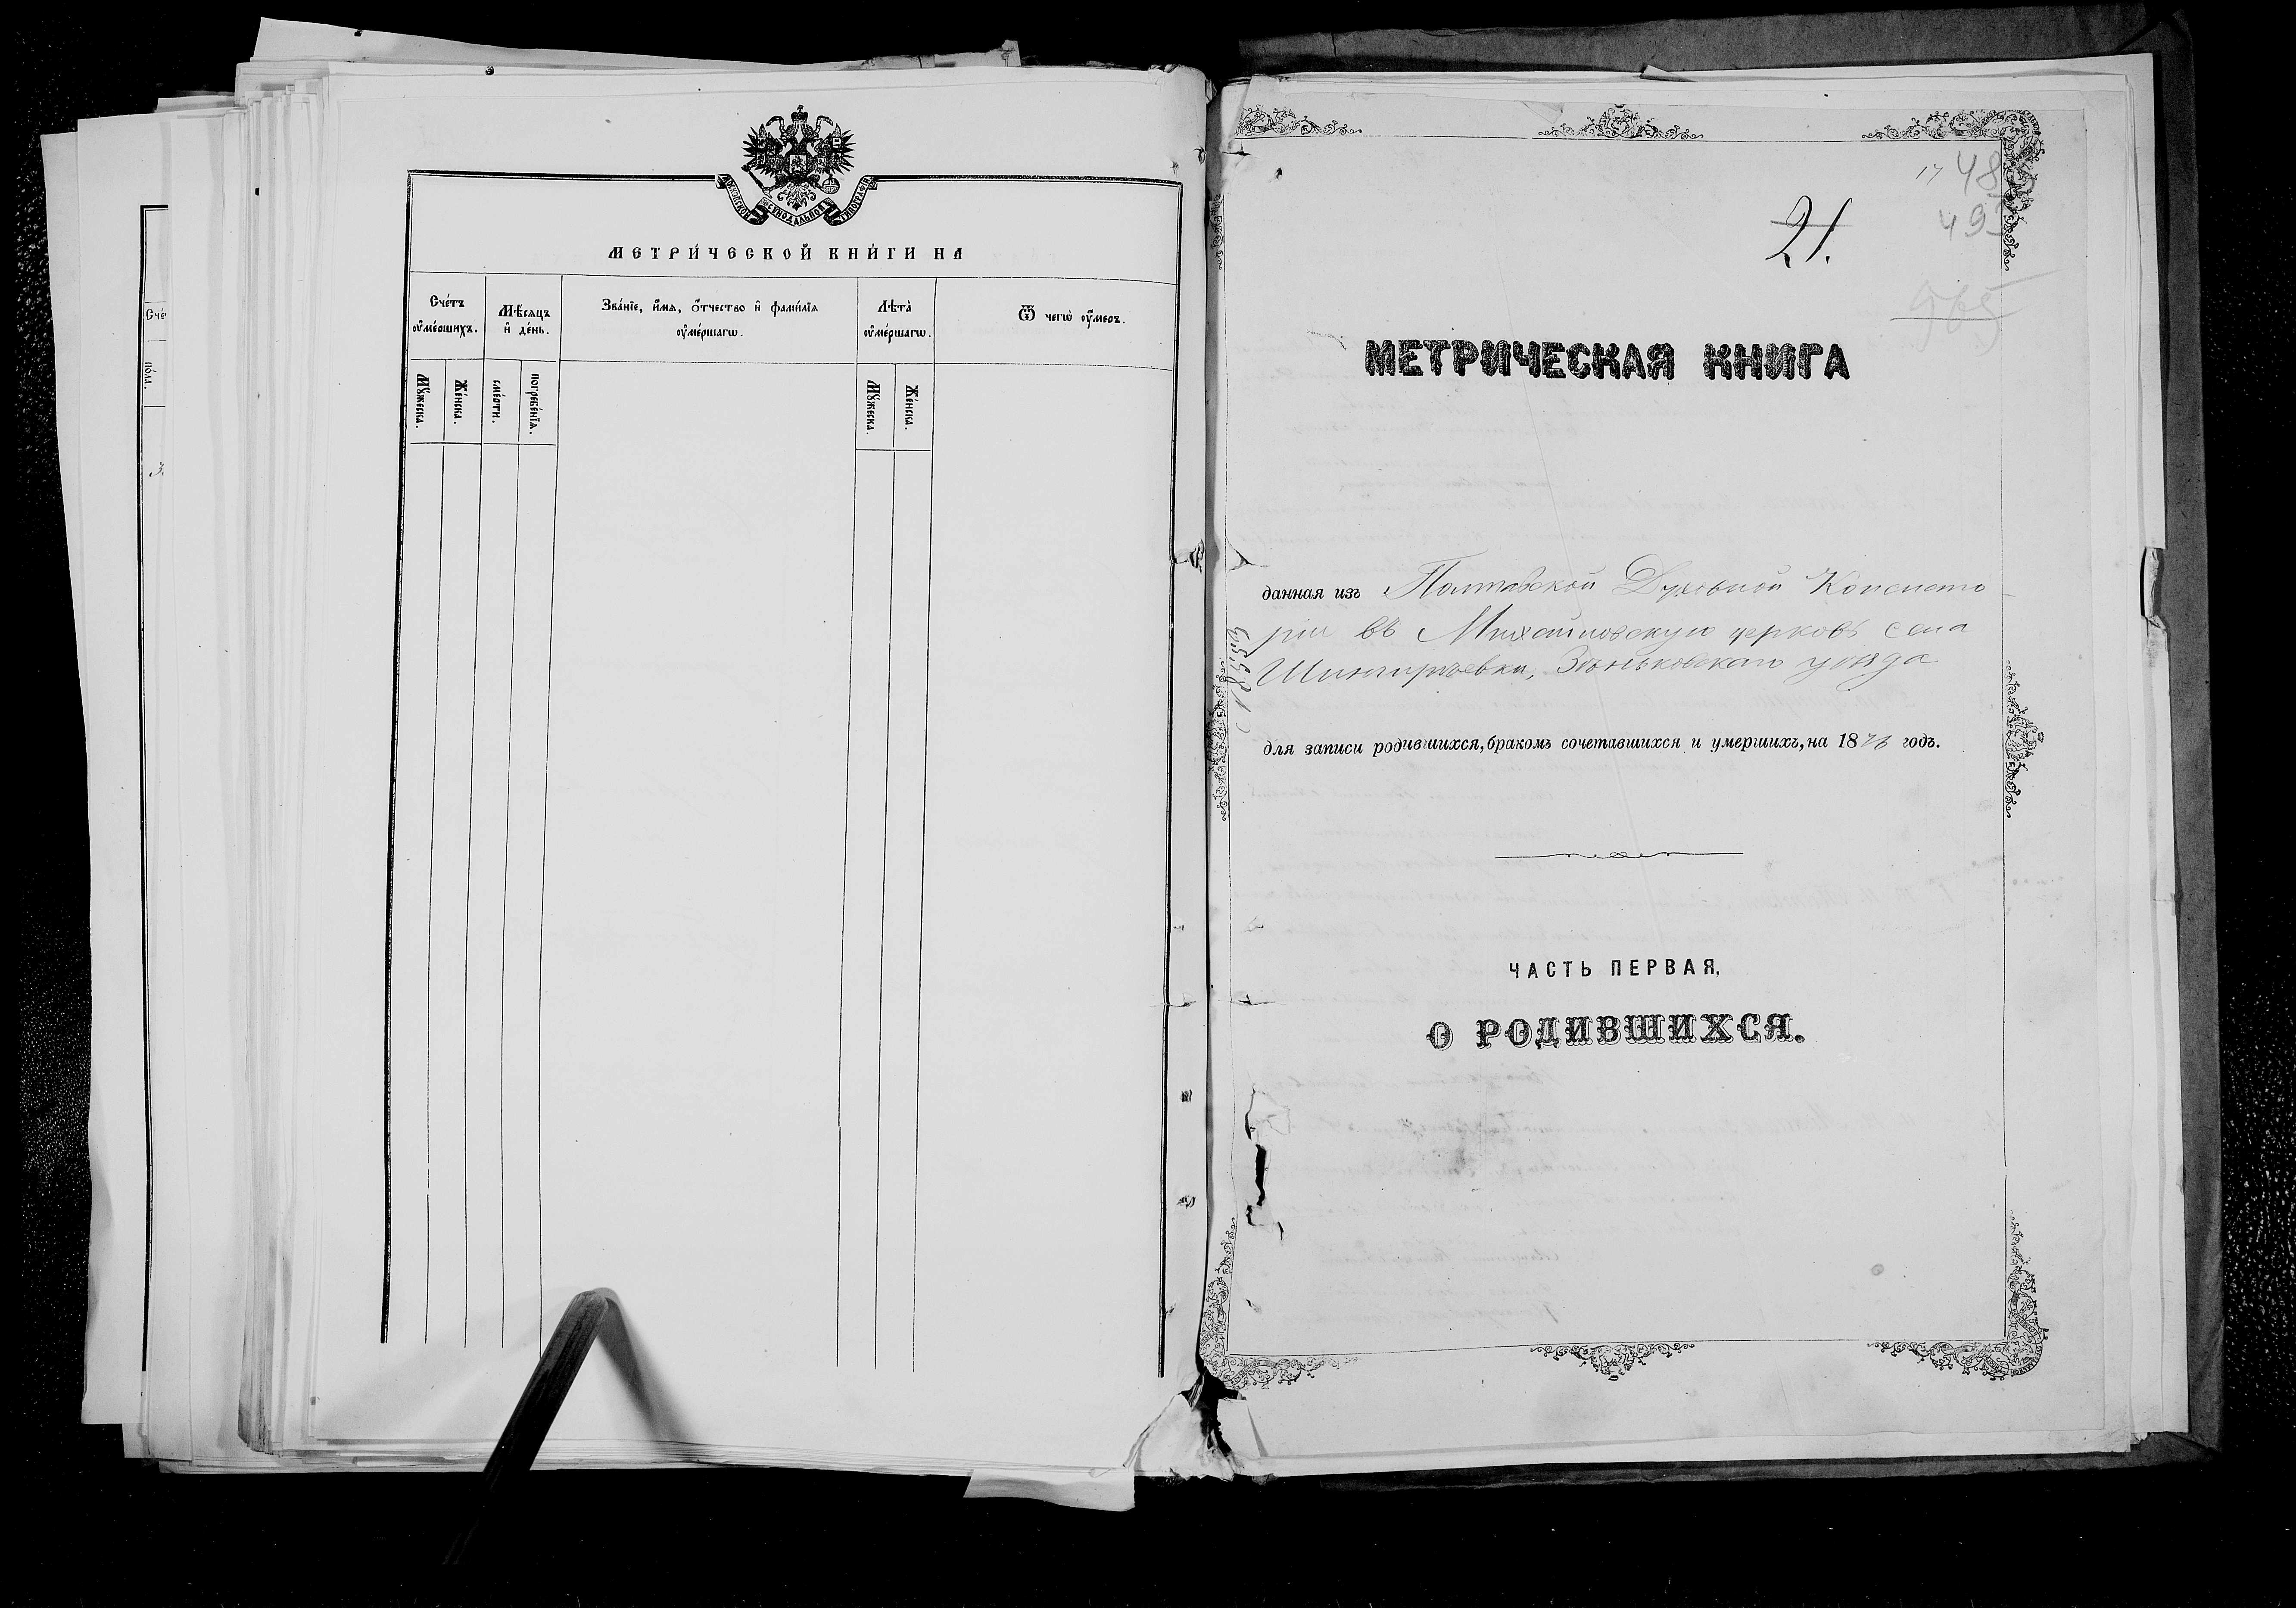 МОСКОВСКОЙ СѴНОДАЛЬНОЙ ТИПОГРАФІИ
МЕТРИ́ЧЕСКОЙ КНИ́ГИ НА
Сче́тъ
оу҆ме́ршихъ.
Мѣ́сяцъ
и҆ де́нь.
Зва́нїе, и҆́мѧ, ѻ҆́тчество и҆ фами́лїѧ
оу҆ме́ршагѡ.
Лѣ́та
оу҆ме́ршагѡ.
Ѿ чегѡ̀ оу҆́меръ.
Мꙋ́жеска.
Же́нска.
сме́рти.
погребе́нїѧ.
Мꙋ́жеска.
Же́нска.
Сче
по́ла.
3
17 48
493
21.
965
МЕТРИЧЕСКАЯ КНИГА
данная изъ Полтавской Духовной Консисто
ріи въ Михайловскую церковь села
Зѣньковскаго уѣзда
для записи родившихся, бракомъ сочетавшихся и умершихъ, на 18 годъ.
ЧАСТЬ ПЕРВАЯ,
О РОДИВШИХСЯ.